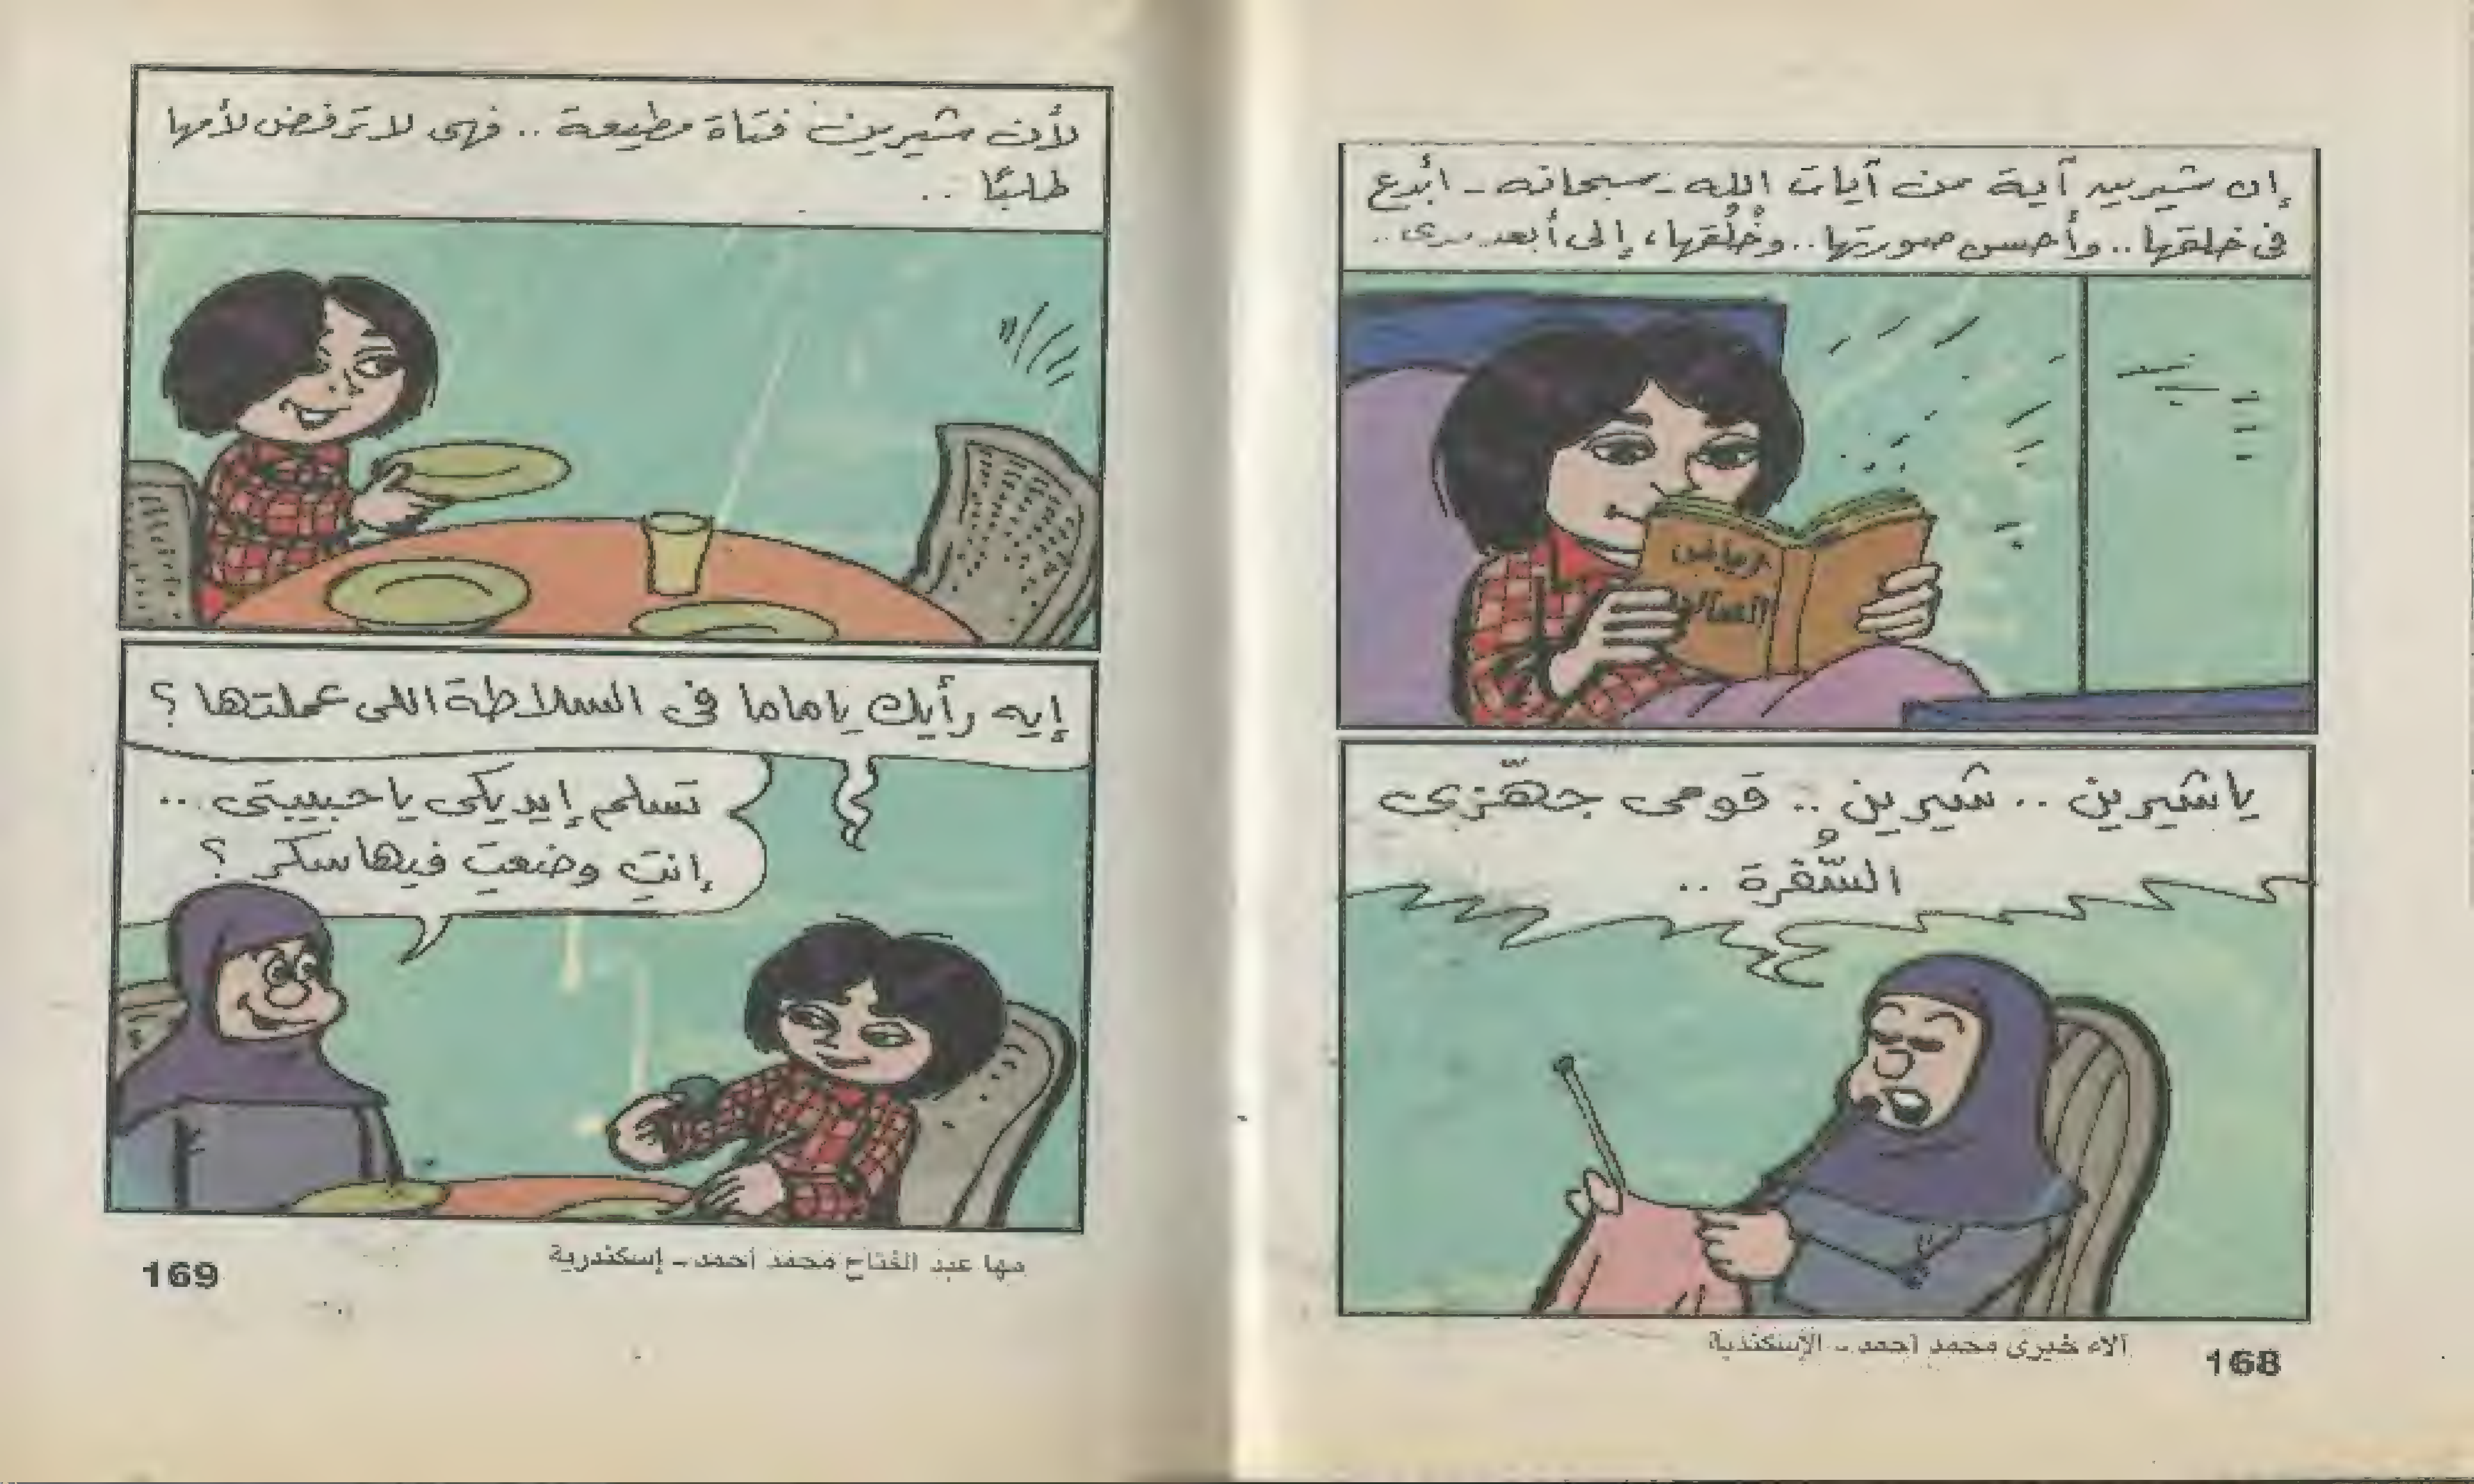 إن شيرين آية من آيات الله - سبحانه - أبدع
في خلقها .. وأحسن صورتها .. وخُلُقها، إلى أبعد مدى ..
رياض
يا شيرين .. شيرين .. قومى جهّزى
السُّفرة ..
آلاء خيرى محمد أحمد - الإسكندية
168
لأن شيرين فتاة مطيعة .. فهى لا ترفض لأمها
طلبًا ..
إيه رأيك ياماما فى السلاطة اللى عملتها ؟
تسلم إيديكى يا حبيبتى ..
إنتِ وضعتِ فيها سكر ؟
مها عبد الفتاح محمد أحمد - إسكندرية
169